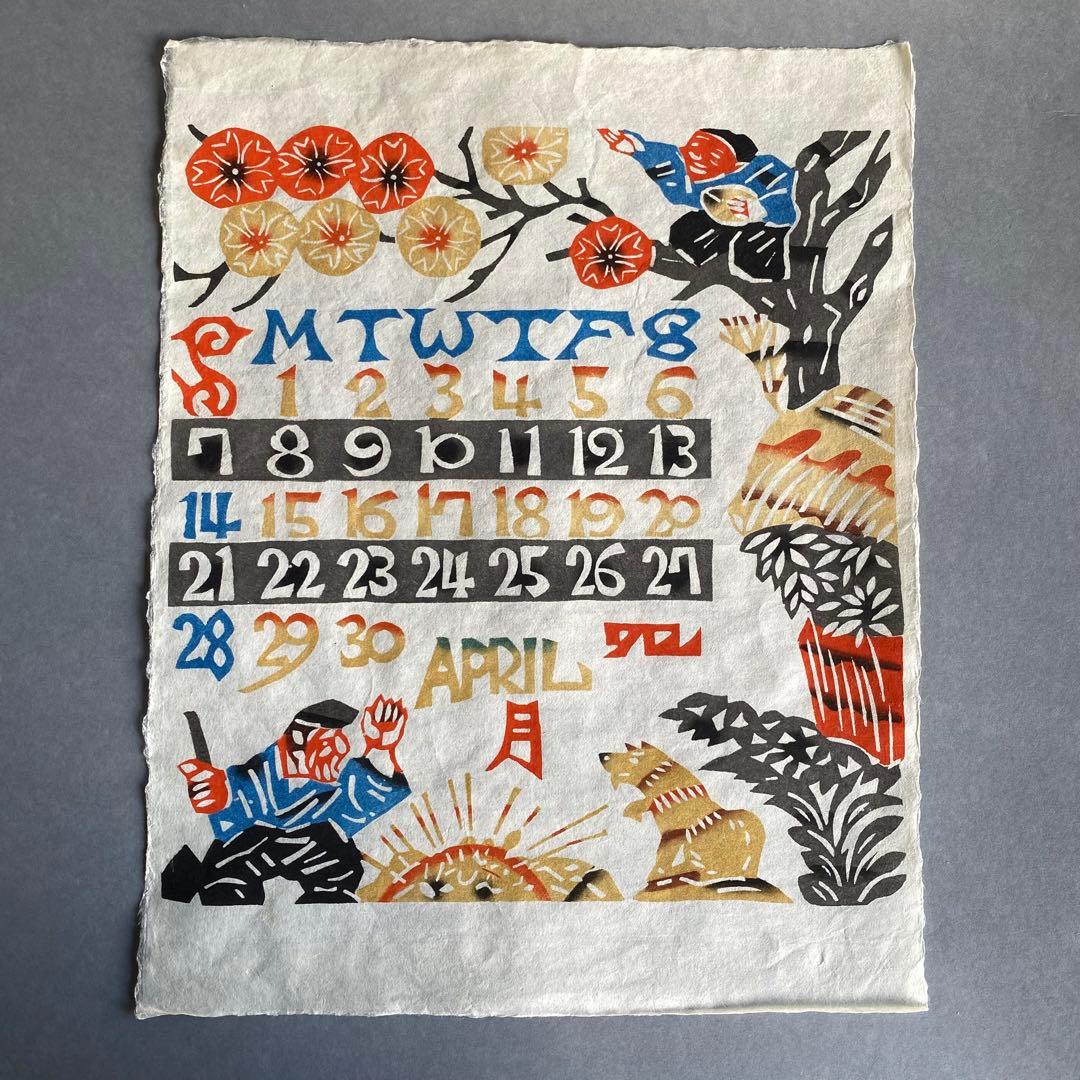 S M T W T F S
1 2 3 4 5 6
7 8 9 10 11 12 13
14 15 16 17 18 19 20
21 22 23 24 25 26 27
28 29 30
APRIL 四
月